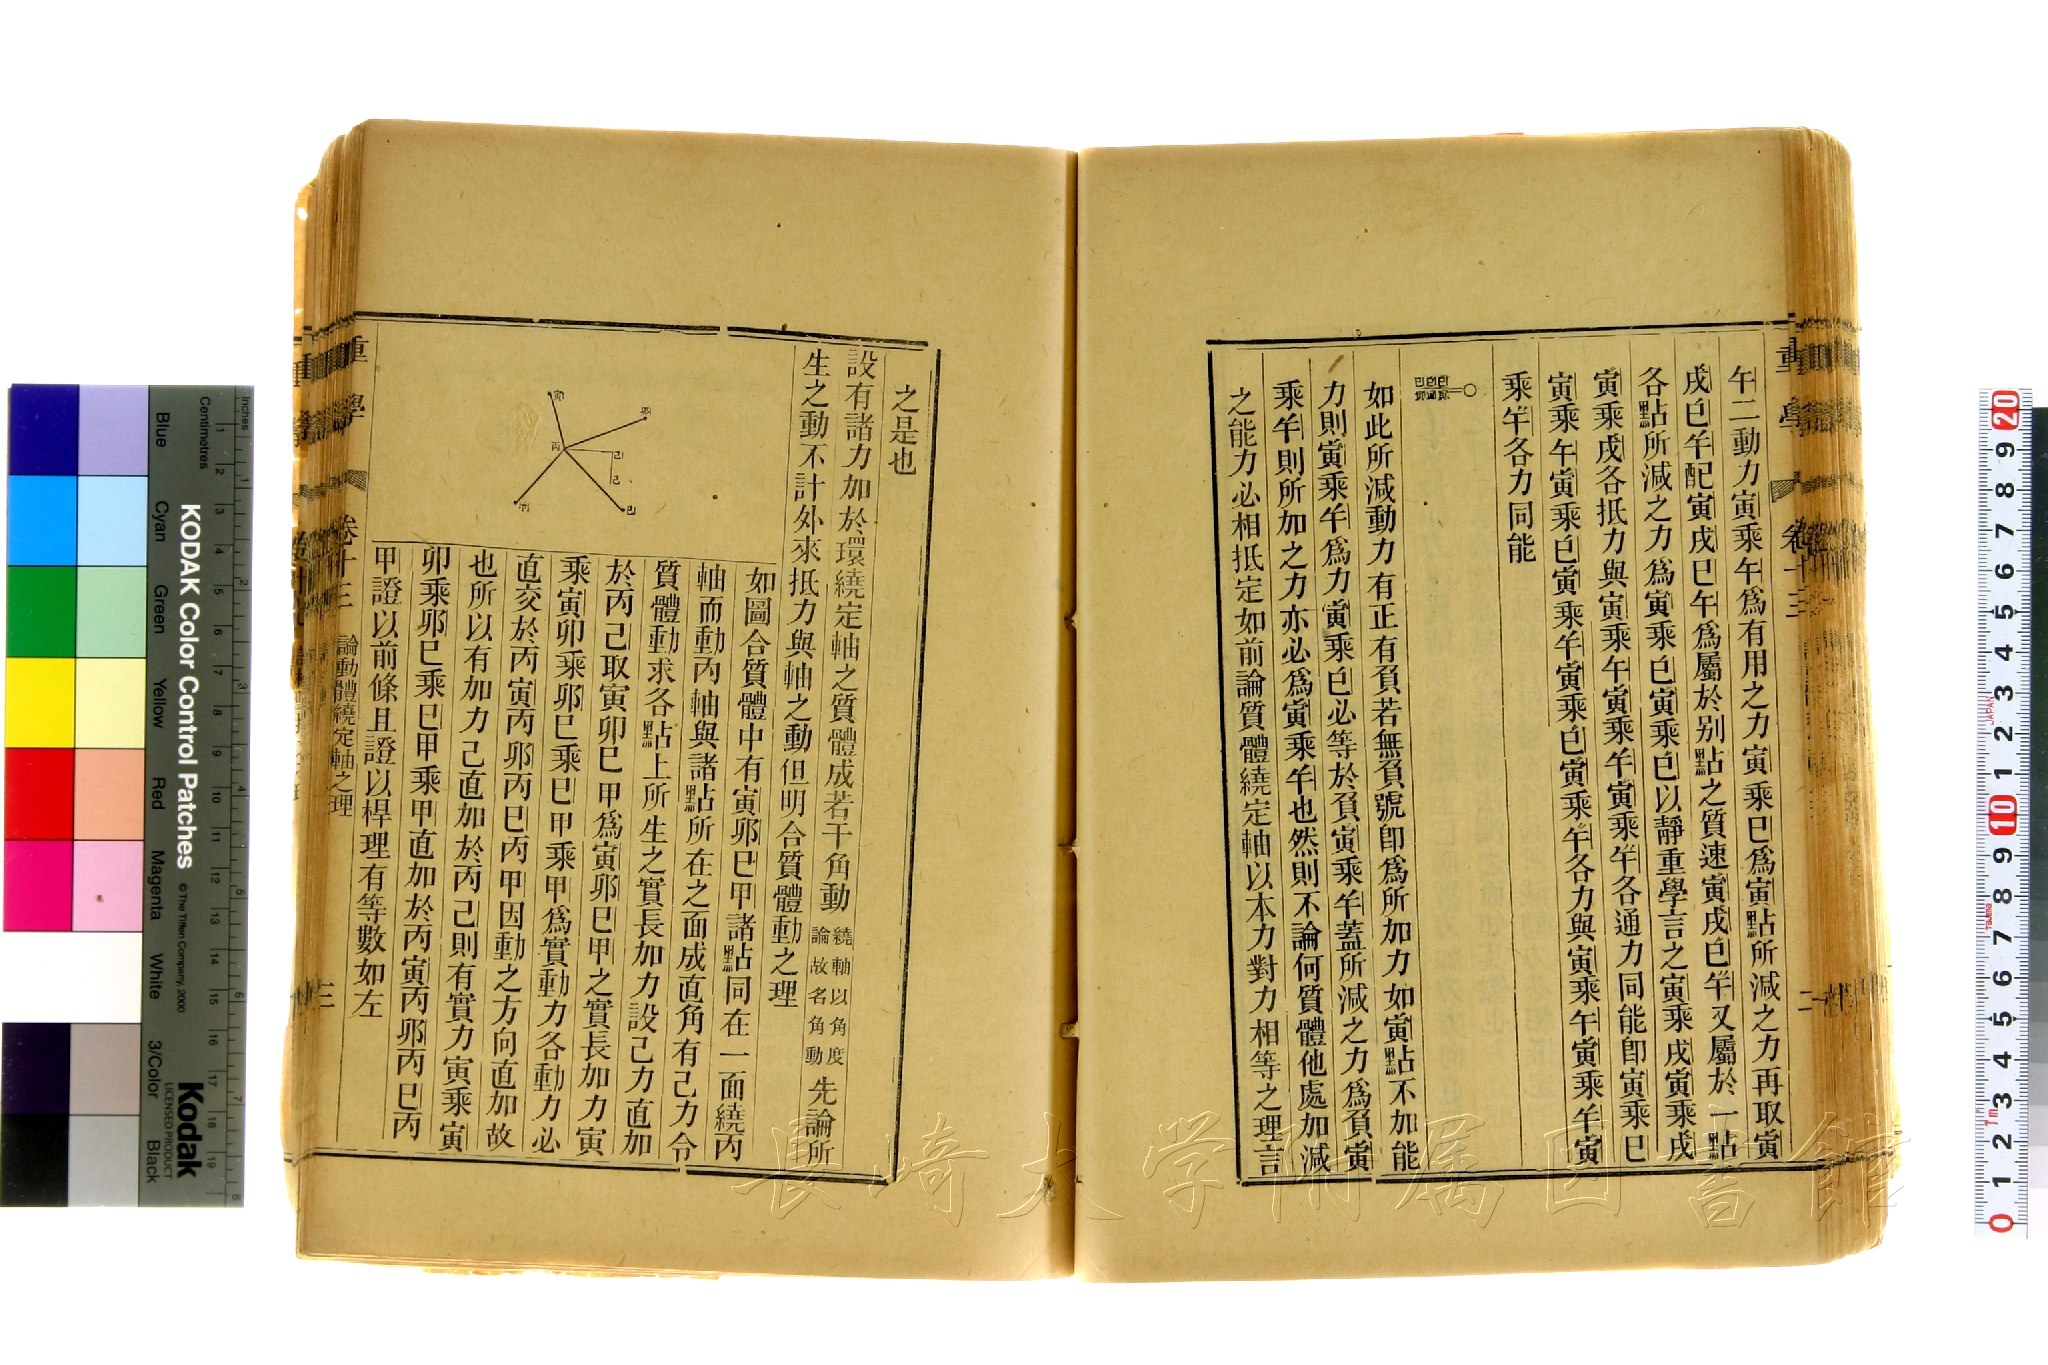 午二動力寅乘午爲有用之力寅乘巳爲寅點所減之力再取寅
戌巳午配寅戌巳午爲屬於別點之質速寅戌巳午又屬於一點
各點所減之力爲寅乘巳寅乘巳以靜重學言之寅乘戌寅乘戌
寅乘戌各抵力與寅乘午寅乘午寅乘午各通力同能卽寅乘巳
寅乘午寅乘巳寅乘午寅乘巳寅乘午各力與寅乘午寅乘午寅
乘午各力同能
如此所減動力有正有負若無負號卽爲所加力如寅點不加能
力則寅乘午爲力寅乘巳必等於負寅乘午蓋所減之力爲負寅
乘午則所加之力亦必爲寅乘午也然則不論何質體他處加減
之能力必相抵定如前論質體繞定軸以本力對力相等之理言
之是也
設有諸力加於環繞定軸之質體成若干角動繞軸以角度論故名角動先論所
生之動不計外來抵力與軸之動但明合質體動之理
如圖合質體中有寅卯巳甲諸點同在一面繞丙
軸而動丙軸與諸點所在之面成直角有己力令
質體動求各點上所生之實長加力設己力直加
於丙己取寅卯巳甲爲寅卯巳甲之實長加力寅
乘寅卯乘卯巳乘巳甲乘甲爲實動力各動力必
直交於丙寅丙卯丙巳丙甲因動之方向直加故
也所以有加力己直加於丙己則有實力寅乘寅
卯乘卯巳乘巳甲乘甲直加於丙寅丙卯丙巳丙
甲證以前條且證以桿理有等數如左
重學
卷十三
論動體繞定軸之理
三
重學
卷十三
長崎大学附属図書館
KODAK Color Control Patches
©The Tiffen Company, 2000
Kodak
LICENSED PRODUCT
Blue
Cyan
Green
Yellow
Red
Magenta
White
3/Color
Black
Inches
Centimetres